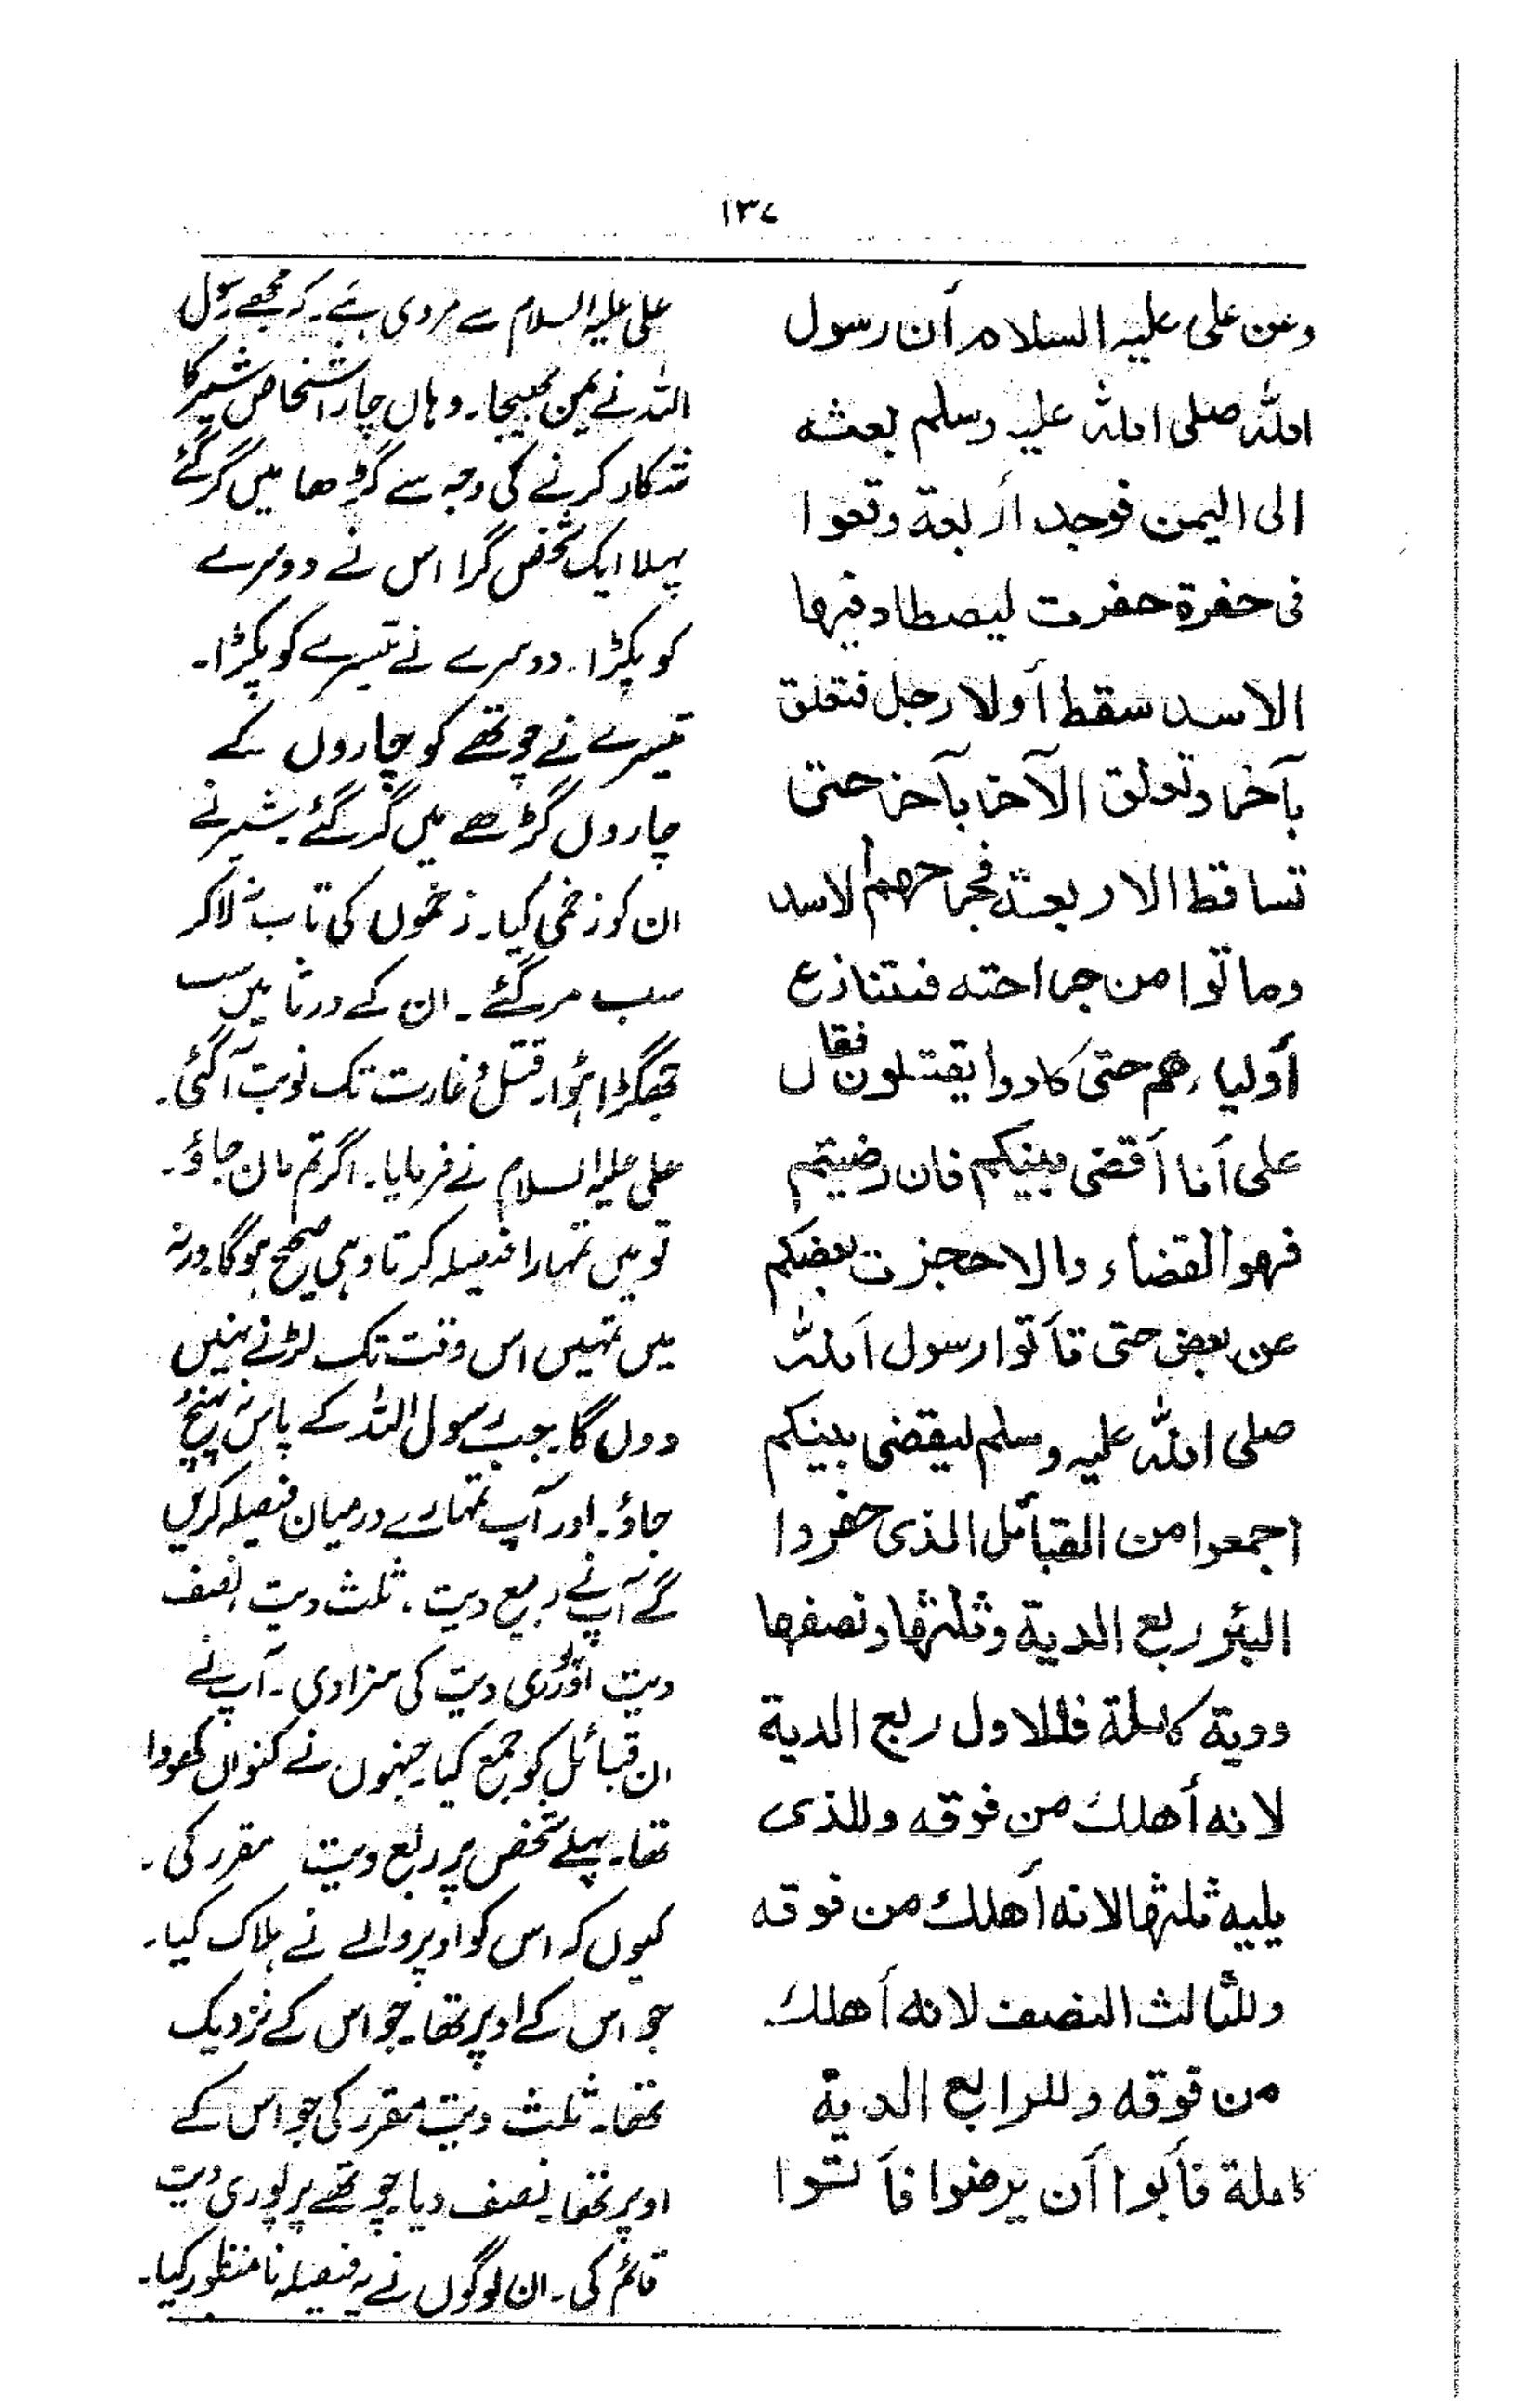 ۱۳۷
وعن علی علیہ السلام أن رسول
اللہ صلی اللہ علیہ وسلم بعثہ
الی الیمن فوجد أربعة وقعوا
فی حفرة حفرت لیصطاد فیها
الاسد سقط أولا رجل فتعلق
بآخر وتعلق الآخر بآخر حتی
تساقط الاربعة فجرحهم الاسد
وماتوا من جراحته فتنازع
أولیاءهم حتی کادوا یقتتلون فقال
علی أنا أقضی بینکم فان رضیتم
فهو القضاء والا حجزت بعضکم
عن بعض حتی تأتوا رسول اللہ
صلی اللہ علیہ وسلم لیقضی بینکم
اجمعوا من القبائل الذی حفروا
البئر ربع الدیة وثلثها ونصفها
ودیة کاملة فللاول ربع الدیة
لانه أهلك من فوقه وللذی
یلیه ثلثها لانه أهلك من فوقه
وللثالث النصف لانه أهلك
من فوقه وللرابع الدیة
کاملة فأبوا أن یرضوا فأتوا
علی علیہ السلام سے مروی ہے۔ کہ مجھے رسول
اللہ نے یمن بھیجا۔ وہاں چار اشخاص شیر کا
شکار کرنے کی وجہ سے گڑھا میں گر گئے
پہلا ایک شخص گرا اس نے دوسرے
کو پکڑا۔ دوسرے نے تیسرے کو پکڑا۔
تیسرے نے چوتھے کو چاروں کے
چاروں گڑھے میں گر گئے شیر نے
ان کو زخمی کیا۔ زخموں کی تاب نہ لا کر
سب مر گئے۔ ان کے ورثا میں سب
جھگڑا ہؤا۔ قتل و غارت تک نوبت آ گئی۔
علی علیہ السلام نے فرمایا۔ اگر تم مان جاؤ۔
تو میں تمہارا فیصلہ کرتا وہی صحیح ہوگا ورنہ
میں تمہیں اس وقت تک لڑنے نہیں
دوں گا۔ جب رسول اللہ کے پاس نہ پہنچ
جاؤ۔ اور آپ تمہارے درمیان فیصلہ کریں
گے آپ نے ربع دیت، ثلث دیت، نصف
دیت اور پوری دیت کی سزا دی۔ آپ نے
ان قبائل کو جمع کیا جنہوں نے کنواں کھودا
تھا۔ پہلے شخص پر ربع دیت مقرر کی۔
کیوں کہ اس کو اوپر والے نے ہلاک کیا۔
جو اس کے اوپر تھا۔ جو اس کے نزدیک
تھا۔ ثلث دیت مقرر کی جو اس کے
اوپر تھا۔ نصف دیا چوتھے پر پوری دیت
قائم کی۔ ان لوگوں نے یہ فیصلہ نا منظور کیا۔